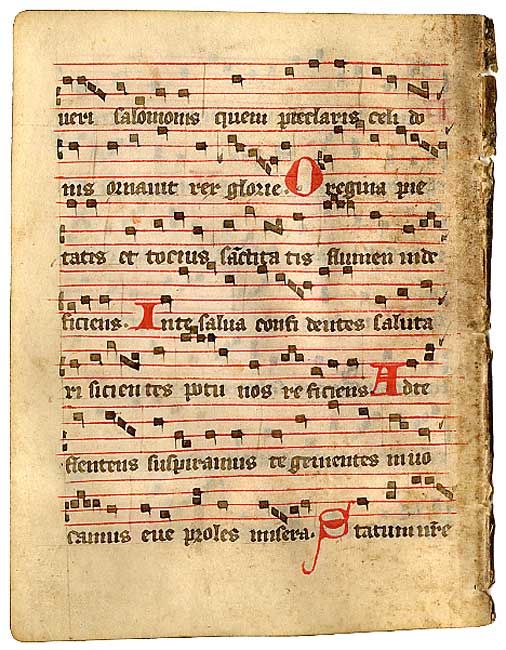 ueri salomonis quem preclaris celi do
nis ornauit rex glorie. O regina pie
tatis et tocius sanctita tis flumen inde
ficiens. In te salua confi dentes saluta
ri sicientes potu nos re ficiens Ad te
flentens suspiramus te gementes in uo
camus eue proles misera. Statum nostre